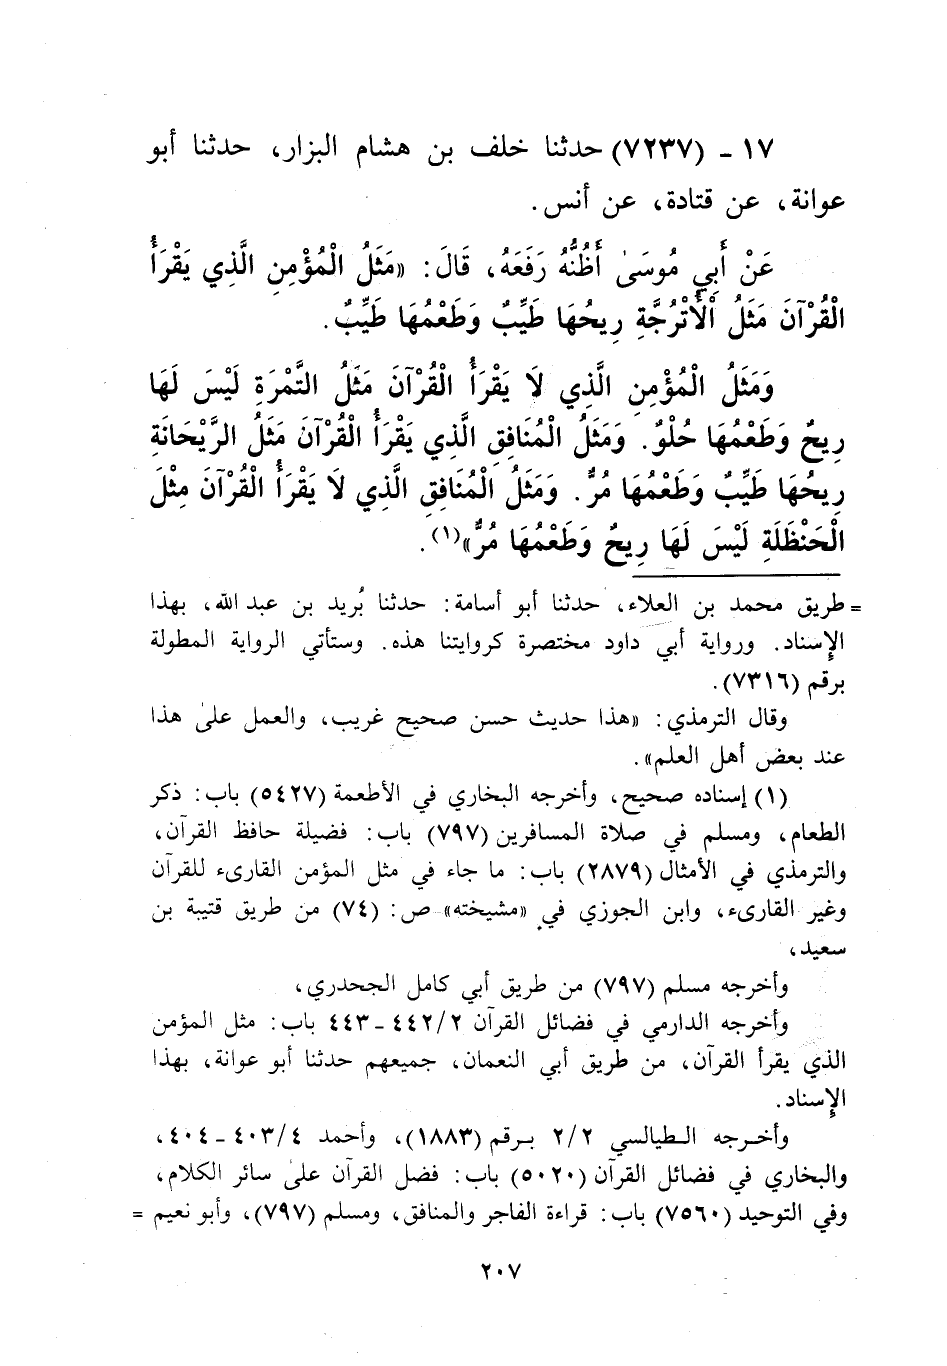 ١٧ - (٧٢٣٧) حدثنا خلف بن هشام البزار، حدثنا أبو
عوانة، عن قتادة، عن أنس.
عَنْ أَبِي مُوسَىٰ أَظُنُّهُ رَفَعَهُ، قَالَ: «مَثَلُ الْمُؤْمِنِ الَّذِي يَقْرَأُ
الْقُرْآنَ مَثَلُ الْأُتْرُجَّةِ رِيحُهَا طَيِّبٌ وَطَعْمُهَا طَيِّبٌ.
وَمَثَلُ الْمُؤْمِنِ الَّذِي لَا يَقْرَأُ الْقُرْآنَ مَثَلُ التَّمْرَةِ لَيْسَ لَهَا
رِيحٌ وَطَعْمُهَا حُلْوٌ. وَمَثَلُ الْمُنَافِقِ الَّذِي يَقْرَأُ الْقُرْآنَ مَثَلُ الرَّيْحَانَةِ
رِيحُهَا طَيِّبٌ وَطَعْمُهَا مُرٌّ. وَمَثَلُ الْمُنَافِقِ الَّذِي لَا يَقْرَأُ الْقُرْآنَ مِثْلَ
الْحَنْظَلَةِ لَيْسَ لَهَا رِيحٌ وَطَعْمُهَا مُرٌّ»(١).
= طريق محمد بن العلاء، حدثنا أبو أسامة: حدثنا بُريد بن عبد الله، بهذا
الإسناد. ورواية أبي داود مختصرة كروايتنا هذه. وستأتي الرواية المطولة
برقم (٧٣١٦).
وقال الترمذي: «هذا حديث حسن صحيح غريب، والعمل علىٰ هذا
عند بعض أهل العلم».
(١) إسناده صحيح، وأخرجه البخاري في الأطعمة (٥٤٢٧) باب: ذكر
الطعام، ومسلم في صلاة المسافرين (٧٩٧) باب: فضيلة حافظ القرآن،
والترمذي في الأمثال (٢٨٧٩) باب: ما جاء في مثل المؤمن القارىء للقرآن
وغير القارىء، وابن الجوزي في «مشيخته» ص: (٧٤) من طريق قتيبة بن
سعيد،
وأخرجه مسلم (٧٩٧) من طريق أبي كامل الجحدري،
وأخرجه الدارمي في فضائل القرآن ٤٤٢/٢ - ٤٤٣ باب: مثل المؤمن
الذي يقرأ القرآن، من طريق أبي النعمان، جميعهم حدثنا أبو عوانة، بهذا
الإسناد.
وأخرجه الطيالسي ٢/٢ برقم (١٨٨٣)، وأحمد ٤٠٣/٤ - ٤٠٤،
والبخاري في فضائل القرآن (٥٠٢٠) باب: فضل القرآن علىٰ سائر الكلام،
وفي التوحيد (٧٥٦٠) باب: قراءة الفاجر والمنافق، ومسلم (٧٩٧)، وأبو نعيم =
٢٠٧